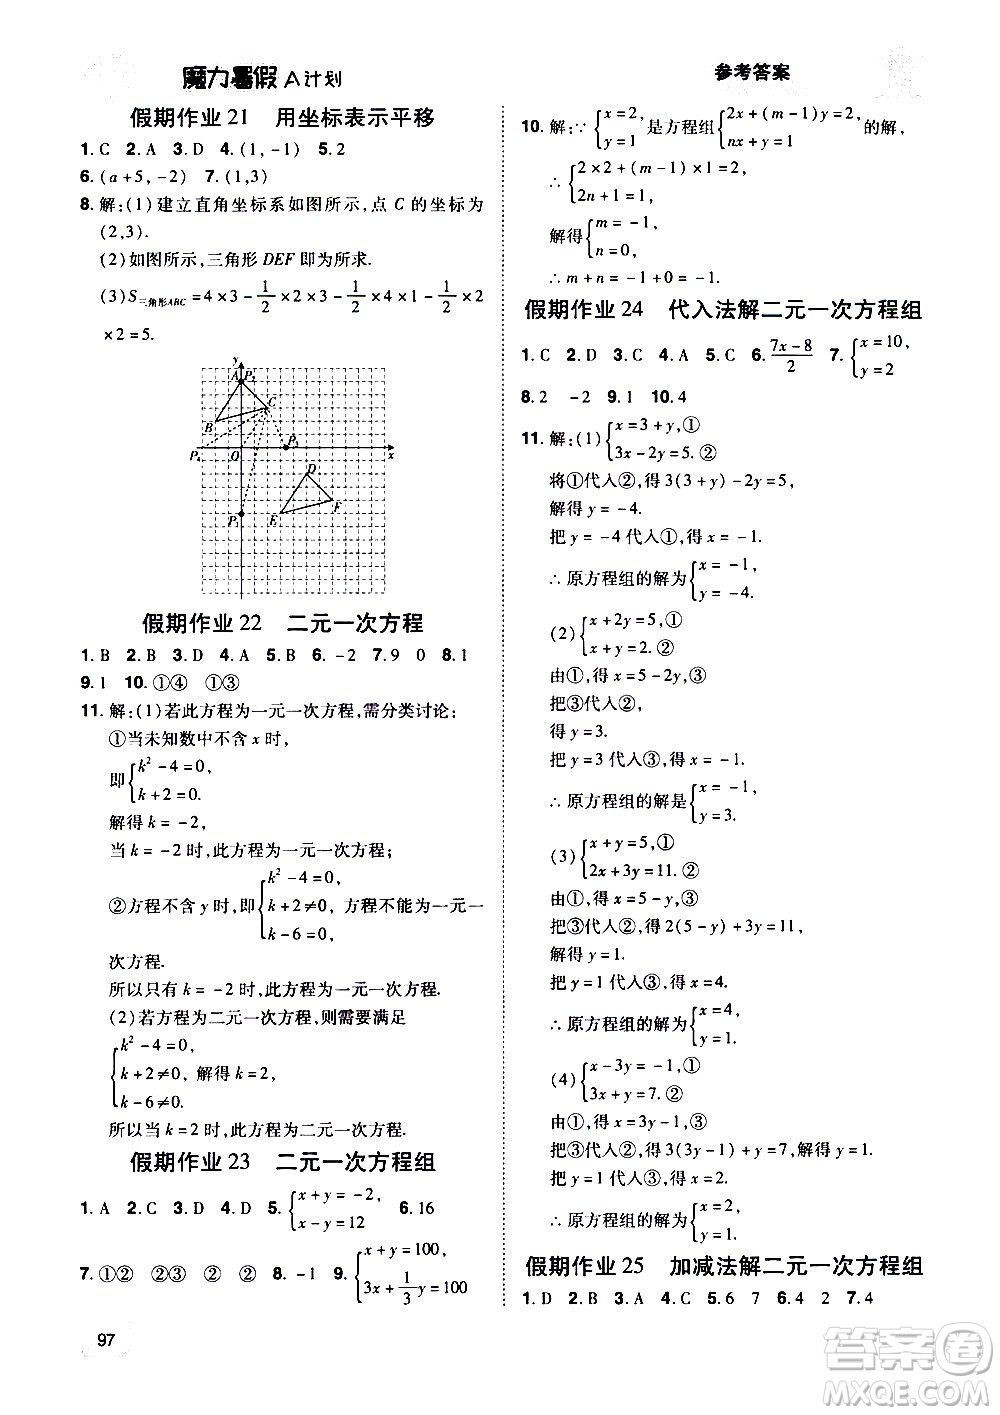 魔力暑假 A计划
参考答案
假期作业21 用坐标表示平移
1. C 2. A 3. D 4. (1,-1) 5. 2
6. (a+5,-2) 7. (1,3)
8. 解:(1)建立直角坐标系如图所示,点C的坐标为
(2,3).
(2)如图所示,三角形DEF即为所求.
(3)S三角形ABC=4×3-1/2×2×3-1/2×4×1-1/2×2
×2=5.
y
A P2
B C
P4 O P3 x
D
P1 E F
假期作业22 二元一次方程
1. B 2. B 3. D 4. A 5. B 6. -2 7. 9 0 8. 1
9. 1 10. ①④ ①③
11. 解:(1)若此方程为一元一次方程,需分类讨论:
①当未知数中不含x时,
即{k²-4=0,
k+2=0.
解得k=-2,
当k=-2时,此方程为一元一次方程;
②方程不含y时,即{k²-4=0,
k+2≠0, 方程不能为一元一
k-6=0,
次方程.
所以只有k=-2时,此方程为一元一次方程.
(2)若方程为二元一次方程,则需要满足
{k²-4=0,
k+2≠0, 解得k=2,
k-6≠0.
所以当k=2时,此方程为二元一次方程.
假期作业23 二元一次方程组
1. A 2. C 3. D 4. D 5. {x+y=-2, x-y=12 6. 16
7. ①② ②③ ② ② 8. -1 9. {x+y=100, 3x+1/3y=100
97
10. 解:∵{x=2, y=1 是方程组{2x+(m-1)y=2, nx+y=1 的解,
∴{2×2+(m-1)×1=2,
2n+1=1,
解得{m=-1,
n=0,
∴m+n=-1+0=-1.
假期作业24 代入法解二元一次方程组
1. C 2. D 3. C 4. A 5. C 6. (7x-8)/2 7. {x=10, y=2
8. 2 -2 9. 1 10. 4
11. 解:(1){x=3+y,①
3x-2y=5.②
将①代入②,得3(3+y)-2y=5,
解得y=-4.
把y=-4代入①,得x=-1.
∴原方程组的解为{x=-1,
y=-4.
(2){x+2y=5,①
x+y=2.②
由①,得x=5-2y,③
把③代入②,
得y=3.
把y=3代入③,得x=-1.
∴原方程组的解是{x=-1,
y=3.
(3){x+y=5,①
2x+3y=11.②
由①,得x=5-y,③
把③代入②,得2(5-y)+3y=11,
解得y=1.
把y=1代入③,得x=4.
∴原方程组的解为{x=4,
y=1.
(4){x-3y=-1,①
3x+y=7.②
由①,得x=3y-1,③
把③代入②,得3(3y-1)+y=7,解得y=1.
把y=1代入③,得x=2.
∴原方程组的解为{x=2,
y=1.
假期作业25 加减法解二元一次方程组
1. D 2. B 3. A 4. C 5. 6 7 6. 4 2 7. 4
答案圈
MXQE.COM